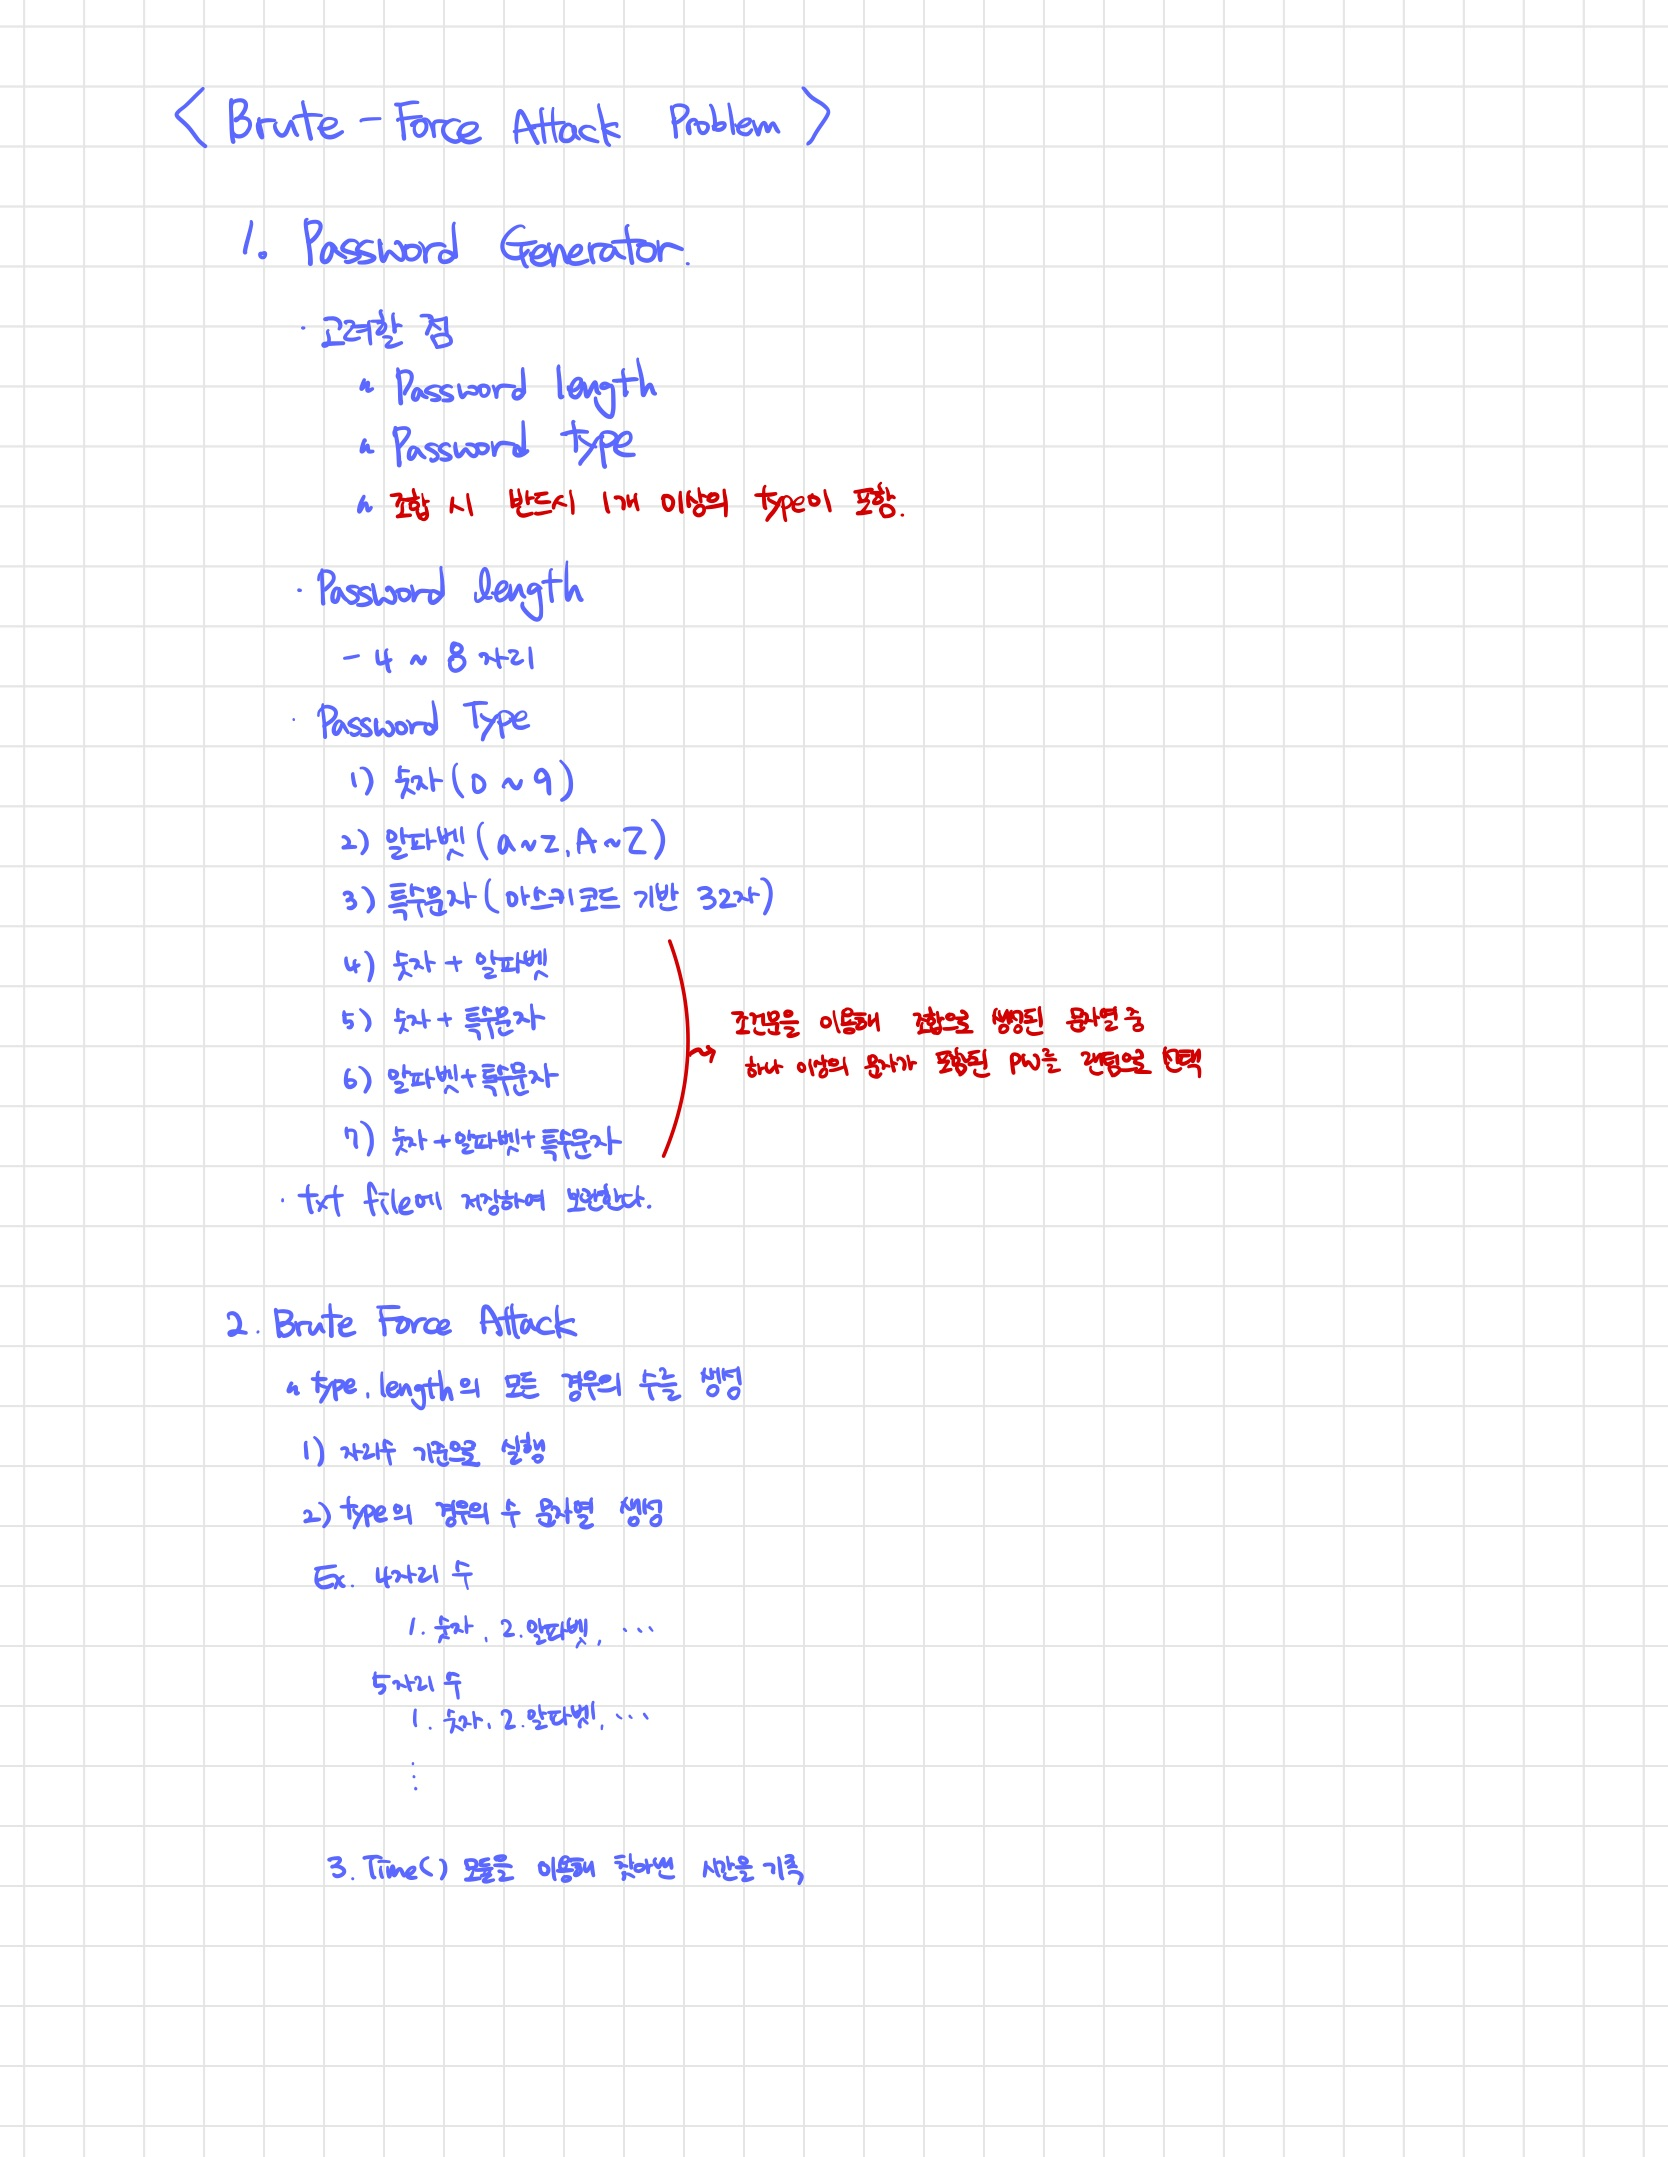 < Brute-Force Attack Problem >
1. Password Generator.
· 고려할 점
Password length
Password type
조합 시 반드시 1개 이상의 type이 포함.
· Password length
- 4 ~ 8 자리
· Password Type
1) 숫자 (0 ~ 9)
2) 알파벳 (a~z, A~Z)
3) 특수문자 (아스키코드 기반 32자)
4) 숫자 + 알파벳
5) 숫자 + 특수문자
조건문을 이용해 조합으로 생성된 문자열 중
하나 이상의 문자가 포함된 PW를 랜덤으로 선택
6) 알파벳+특수문자
7) 숫자+알파벳+특수문자
· txt file에 저장하여 보관한다.
2. Brute Force Attack
type, length의 모든 경우의 수를 생성
1) 자리수 기준으로 실행
2) type의 경우의 수 문자열 생성
Ex. 4자리 수
1. 숫자, 2. 알파벳, ...
5자리 수
1. 숫자, 2. 알파벳, ...
⋮
3. Time() 모듈을 이용해 찾아낸 시간을 기록